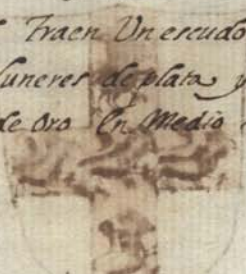 Traen Un escudo
luneres de plata y
de Oro En Medio